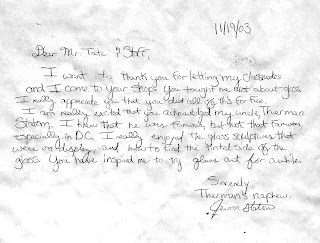 11/19/03
Dear Mr. Tate & Staff,
I want to thank you for letting my classmates
and I come to your shop. You taught me alot about glass
I really appreciate that you did all of this for free.
I am really excited that you acknowledged my uncle, Therman
Statom. I knew that he was famous, but not that famous,
especially in DC. I really enjoyed the glass sculptures that
were on display, and how to find the tinted side of the
glass. You have inspired me to try glass art for awhile.
Sincerely,
Therman's nephew,
Statom